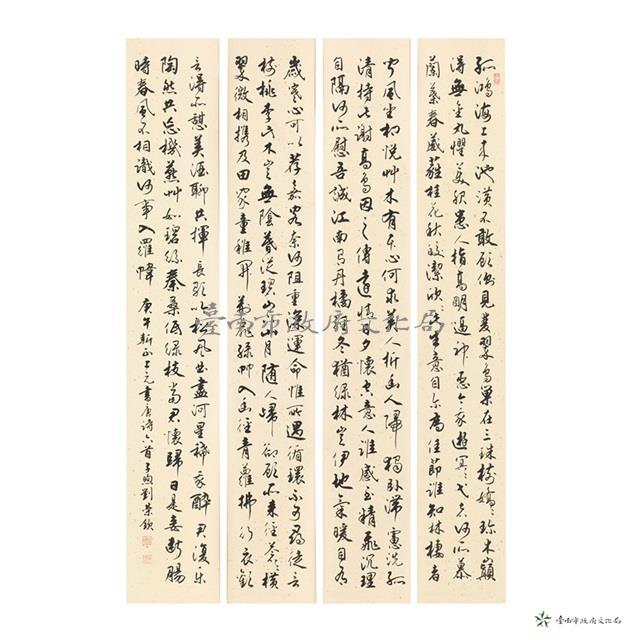 孤鴻海上來池潢不敢顧側見雙翠鳥巢在三珠樹矯矯珍木巔
得無金丸懼美服患人指高明逼神惡今我遊冥冥弋者何所慕
蘭葉春葳蕤桂花秋皎潔欣欣此生意自爾為佳節誰知林棲者
聞風坐相悅艸木有本心何求美人折幽人歸獨臥滯慮洗孤
清持此謝高鳥因之傳遠情日夕懷空意人誰感至精飛沉理
自隔何所慰吾誠江南有丹橘經冬猶綠林豈伊地氣暖自有
歲寒心可以荐嘉客奈何阻重深運命惟所遇循環不可尋徒言
樹桃李此木豈無陰暮從碧山下山月隨人歸卻顧所來徑蒼蒼橫
翠微相攜及田家童稚開荊扉綠竹入幽徑青蘿拂行衣歡
言得所憩美酒聊共揮長歌吟松風曲盡河星稀我醉君復樂
陶然共忘機燕艸如碧絲秦桑低綠枝當君懷歸日是妾斷腸
時春風不相識何事入羅幃 庚午新正上元書唐詩六首子煦劉榮欽
臺南市政府文化局
臺南市政府文化局